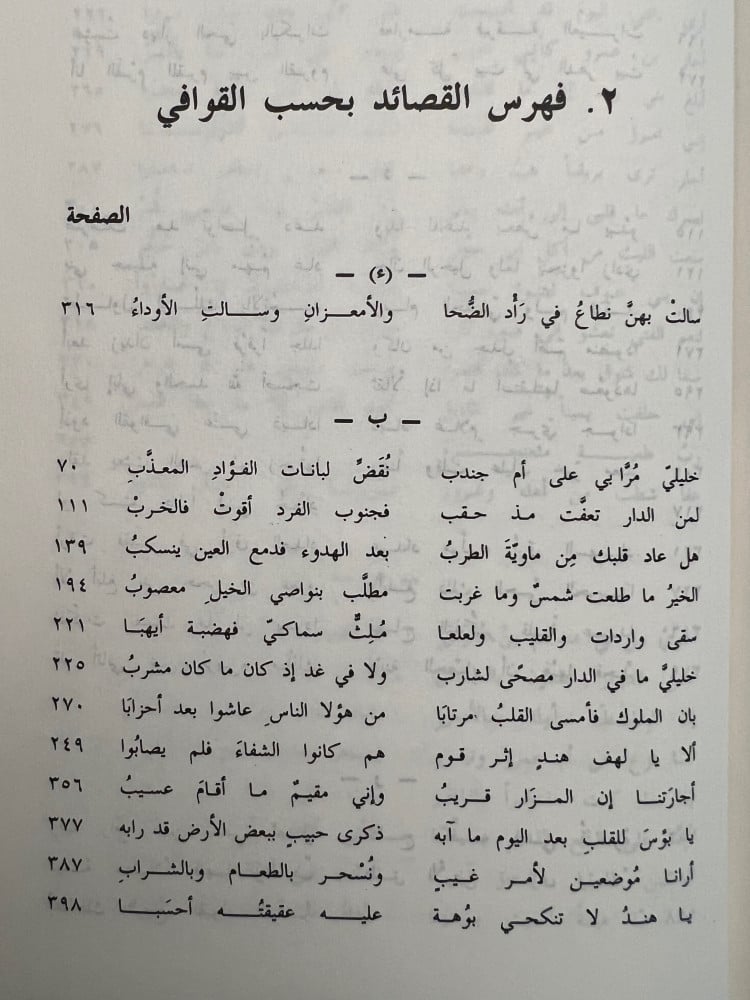 ٢. فهرس القصائد بحسب القوافي
الصفحة
— (ء) —
سالتْ بهنَّ نطاعُ في رَأْد الضُّحا والأمعـزانِ وسـالتِ الأوداءُ ٣١٦
— ب —
خليليّ مُرَّا بي على أم جندب نُقَضِّ لبانات الفـؤادِ المعـذَّبِ ٧٠
لمن الدار تعفَّت مـذ حـقب فجنوب الفرد أقوتْ فالخربْ ١١١
هل عاد قلبك مِن ماويّةَ الطربُ بعد الهدوء فدمع العين ينسكبُ ١٣٩
الخيرُ ما طلعت شمسٌ وما غربت مطلَّب بنواصي الخيلِ معصوبُ ١٩٤
سقى واردات والقليب ولعلعا مُلِثٌّ سماكيّ فهضبة أيهبَا ٢٢١
خليليَّ ما في الدار مصحًى لشارب ولا في غد إذ كان ما كان مشربُ ٢٢٥
بان الملوك فأمسى القلبُ مرتابَا من هؤلا الناسِ عاشوا بعد أحزابَا ٢٧٠
ألا يا لهف هندٍ إثر قوم هم كانوا الشفاءَ فلم يصابُوا ٢٤٩
أجارَتنـا إن المـزَار قـريبُ وإني مقيمٌ ما أقامَ عسيبُ ٣٥٦
يا بؤسَ للقلبِ بعد اليوم ما آبه ذكرى حبيبٍ ببعض الأرض قد رابه ٣٧٧
أرانا مُوضعين لأمر غيبٍ ونُسْحر بالطعام وبالشرابِ ٣٨٧
يـا هنـدُ لا تنكحي بوُهة عليـه عقيقتُـه أحسَبـا ٣٩٨